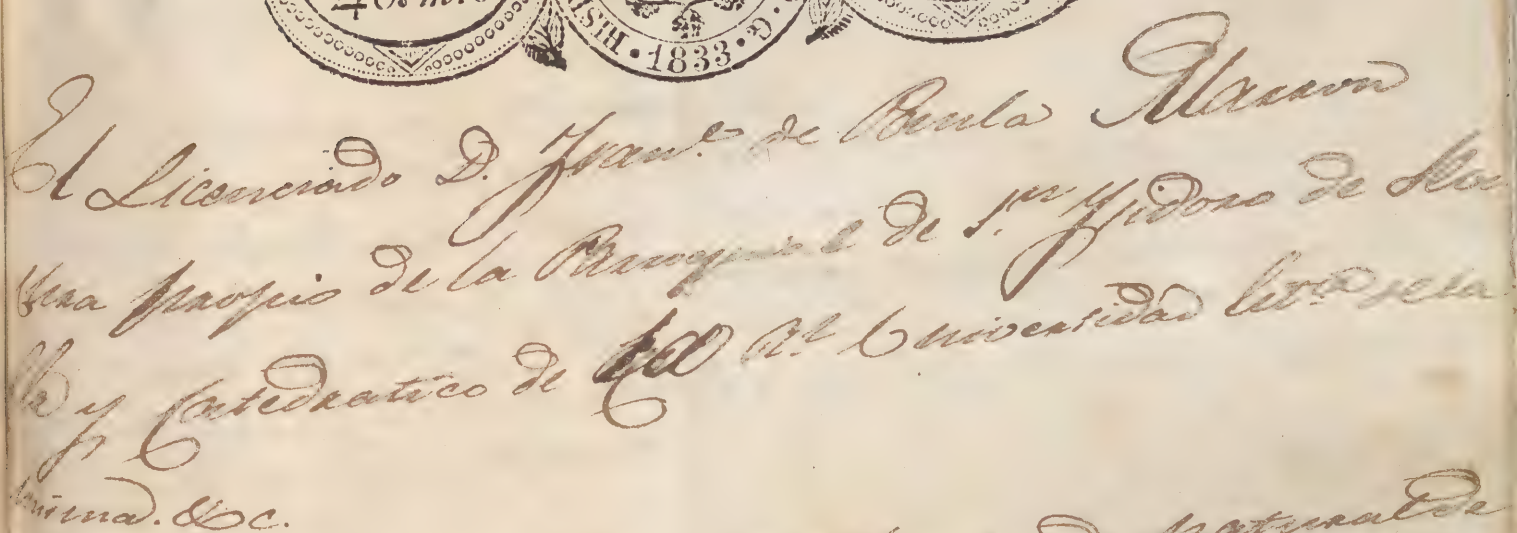 40 m.s
HIS · 1833 · G.
El Licenciado D. Fran.co de Paula Alarcon
Cura propio de la Parroquial de S.n Ysidoro de
y Catedratico de la Rl. Universidad Lit.a de la
misma. &c.
Natural de